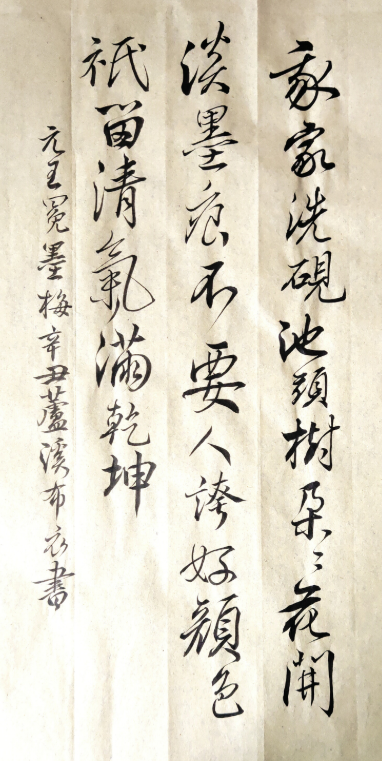 我家洗硯池頭樹朶〻花開
淡墨痕不要人誇好顔色
祇留清氣滿乾坤
元王冕墨梅辛丑蘆溪布衣書